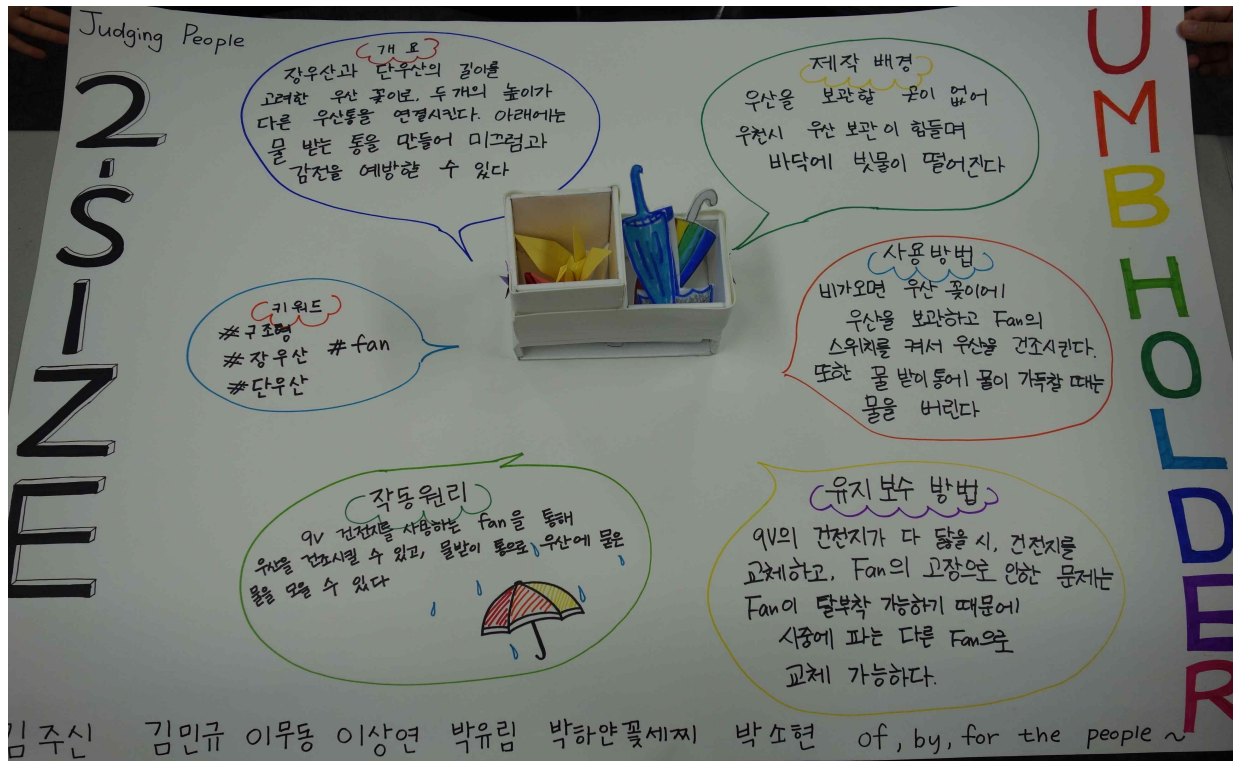 Judging People
2-SIZE
UMB HOLDER
개요
장우산과 단우산의 길이를
고려한 우산 꽂이로, 두개의 높이가
다른 우산통을 연결시킨다. 아래에는
물 받는 통을 만들어 미끄럼과
감전을 예방할 수 있다
제작 배경
우산을 보관할 곳이 없어
우천시 우산 보관이 힘들며
바닥에 빗물이 떨어진다
키워드
#구조형
#장우산 #fan
#단우산
사용방법
비가오면 우산 꽂이에
우산을 보관하고 Fan의
스위치를 켜서 우산을 건조시킨다.
또한 물 받이 통에 물이 가득찰 때는
물을 버린다
작동원리
9V 건전지를 사용하는 fan을 통해
우산을 건조시킬 수 있고, 물받이 통으로 우산에 묻은
물을 모을 수 있다
유지보수 방법
9V의 건전지가 다 닳을 시, 건전지를
교체하고, Fan의 고장으로 인한 문제는
Fan이 탈부착 가능하기 때문에
시중에 파는 다른 Fan으로
교체 가능하다.
김주신 김민규 이무동 이상연 박유림 박하얀꽃세찌 박소현 of, by, for the people ~